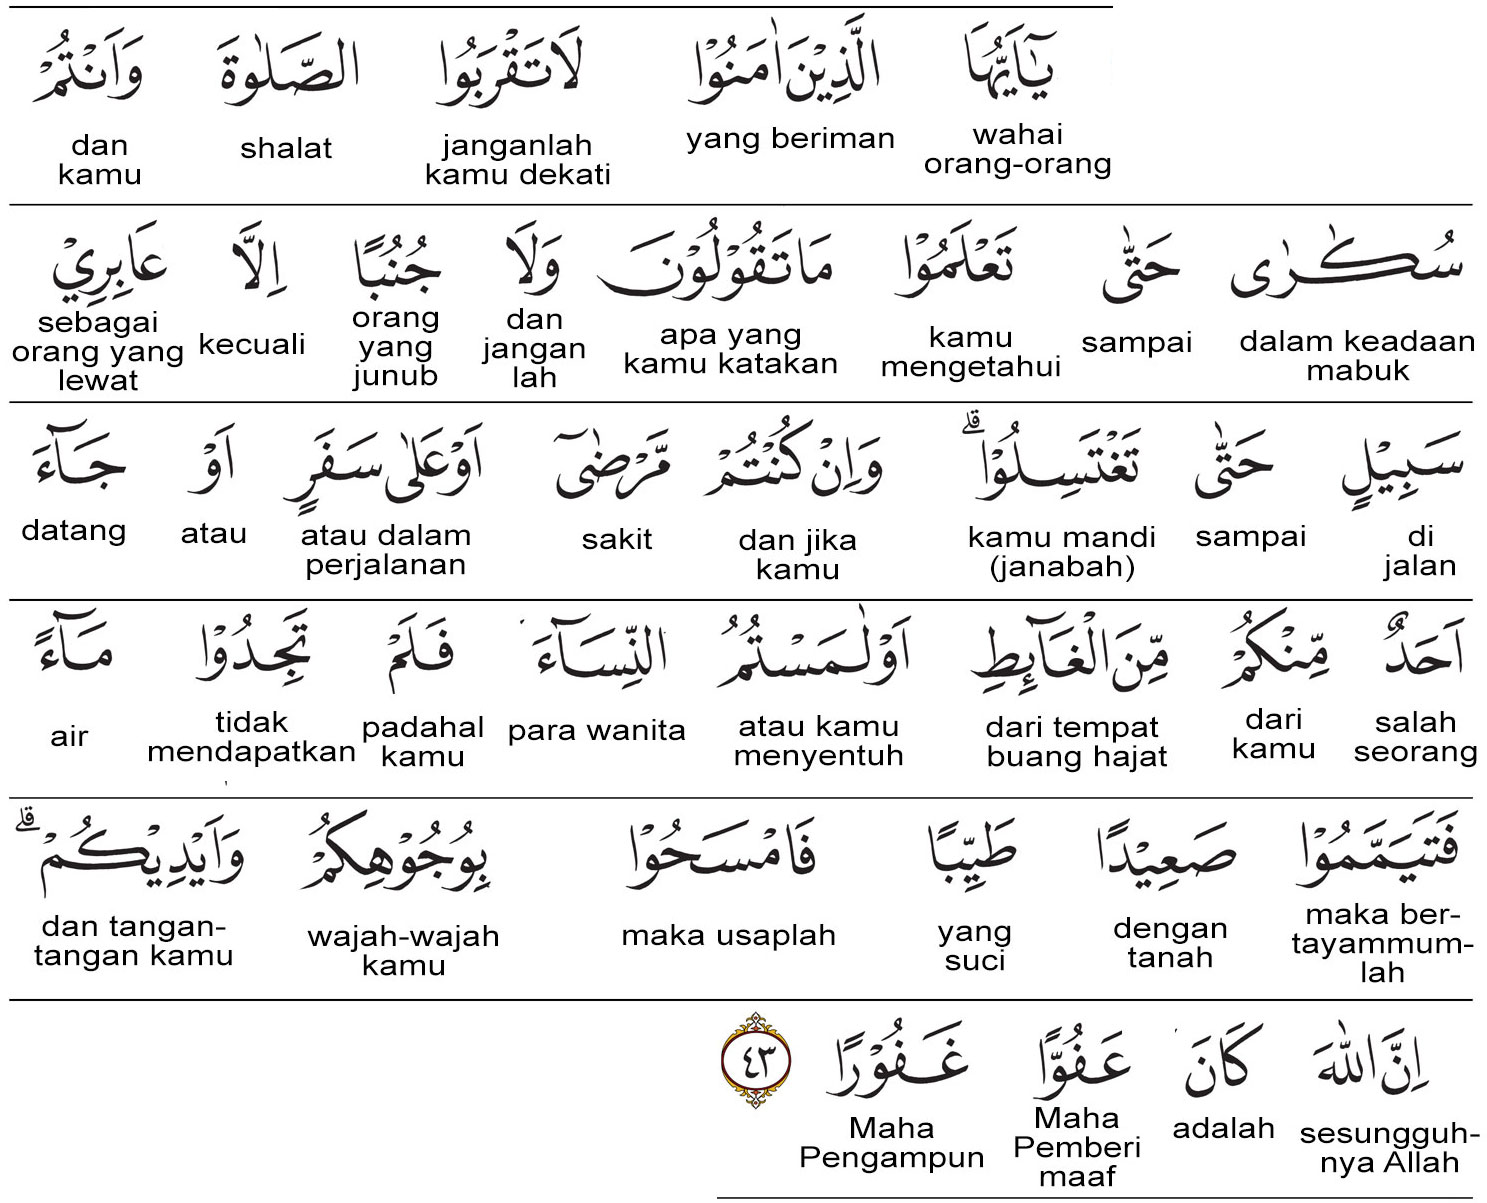 يٰٓاَيُّهَا الَّذِيْنَ اٰمَنُوْا لَا تَقْرَبُوا الصَّلٰوةَ وَاَنْتُمْ
wahai orang-orang yang beriman janganlah kamu dekati shalat dan kamu
سُكَارٰى حَتّٰى تَعْلَمُوْا مَا تَقُوْلُوْنَ وَلَا جُنُبًا اِلَّا عَابِرِيْ
dalam keadaan mabuk sampai kamu mengetahui apa yang kamu katakan dan jangan lah orang yang junub kecuali sebagai orang yang lewat
سَبِيْلٍ حَتّٰى تَغْتَسِلُوْا ۗ وَاِنْ كُنْتُمْ مَّرْضٰٓى اَوْ عَلٰى سَفَرٍ اَوْ جَاۤءَ
di jalan sampai kamu mandi (janabah) dan jika kamu sakit atau dalam perjalanan atau datang
اَحَدٌ مِّنْكُمْ مِّنَ الْغَاۤىِٕطِ اَوْ لٰمَسْتُمُ النِّسَاۤءَ فَلَمْ تَجِدُوْا مَاۤءً
salah seorang dari kamu dari tempat buang hajat atau kamu menyentuh para wanita padahal kamu tidak mendapatkan air
فَتَيَمَّمُوْا صَعِيْدًا طَيِّبًا فَامْسَحُوْا بِوُجُوْهِكُمْ وَاَيْدِيْكُمْ ۗ
maka ber-tayammum-lah dengan tanah yang suci maka usaplah wajah-wajah kamu dan tangan-tangan kamu
اِنَّ اللّٰهَ كَانَ عَفُوًّا غَفُوْرًا ٤٣
sesungguh-nya Allah adalah Maha Pemberi maaf Maha Pengampun